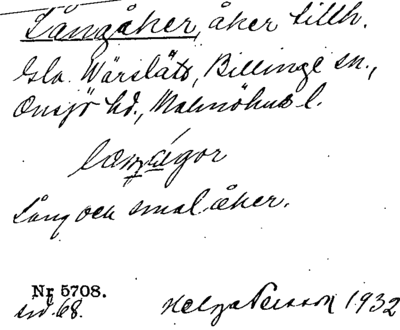 Långåker, åker tillh.
Gla. Wärslätt, Billinge sn.,
Onsjö hd., Malmöhus l.
Lång och smal åker.
Nr 5708.
sid. 68. Helga Persson 1932